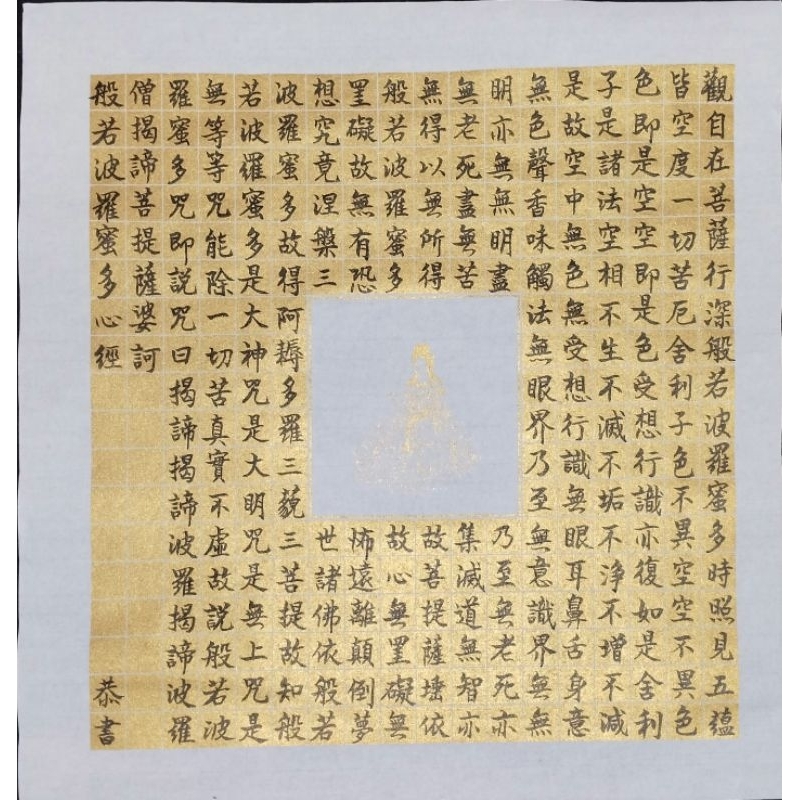 觀自在菩薩行深般若波羅蜜多時照見五蘊
皆空度一切苦厄舍利子色不異空空不異色
色即是空空即是色受想行識亦復如是舍利
子是諸法空相不生不滅不垢不淨不增不減
是故空中無色無受想行識無眼耳鼻舌身意
無色聲香味觸法無眼界乃至無意識界無無
明亦無無明盡乃至無老死亦
無老死盡無苦集滅道無智亦
無得以無所得故菩提薩埵依
般若波羅蜜多故心無罣礙無
罣礙故無有恐怖遠離顛倒夢
想究竟涅槃三世諸佛依般若
波羅蜜多故得阿耨多羅三藐三菩提故知般
若波羅蜜多是大神咒是大明咒是無上咒是
無等等咒能除一切苦真實不虛故說般若波
羅蜜多咒即說咒曰揭諦揭諦波羅揭諦波羅
僧揭諦菩提薩婆訶
般若波羅蜜多心經
恭書